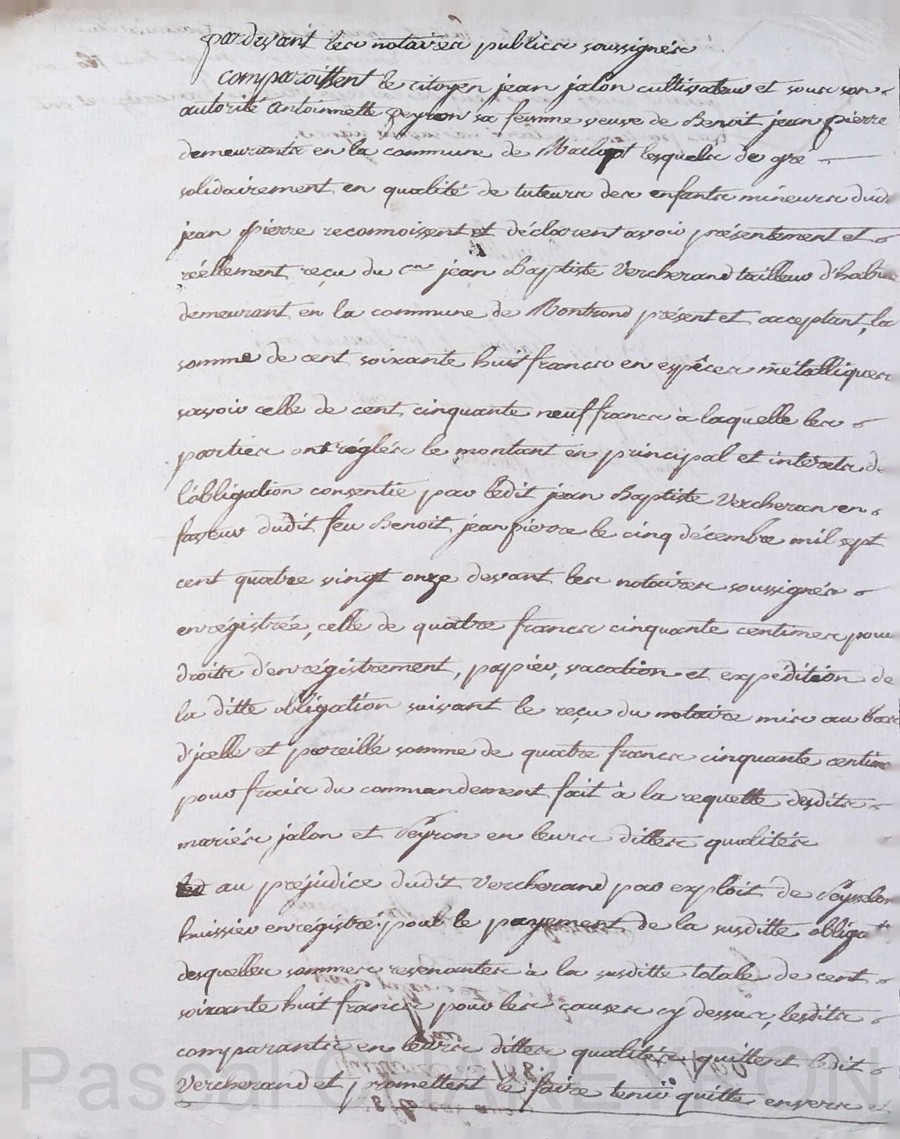 pardevant les notaires publics soussignés
comparoissent le citoyen jean jalon cultivateur et sous son
autorité antoinnette peyron sa femme veuve de Benoit jean pierre
demeurants en la commune de lesquels de gré
solidairement en qualité de tuteurs des enfants mineurs dud
jean pierre reconnoissent et déclarent avoir présentement et
réellement reçu du cen jean Baptiste Vercherand tailleur d'habits
demeurant en la commune de Montrond présent et acceptant, la
somme de cent soixante huit francs en espêces métalliques
savoir celle de cent cinquante neuf francs à laquelle les
parties ont réglés le montant en principal et interets de
l'obligation consentie par ledit jean Baptiste Vercheran en
faveur dudit feu Benoit jean pierre le cinq décembre mil sept
cent quatre vingt onze devant les notaires soussignés
enrégistrée, celle de quatre francs cinquante centimes pour
droits d'enrégistrement, papier, vacation et expedition de
la ditte obligation suivant le reçu du notaire mis au bas
d'jcelle et pareille somme de quatre francs cinquante centime
pour frais du commandement fait à la requette desdits
mariés jalon et Peyron en leurs dittes qualités
au préjudice dudit Vercherand par exploit de
huissier enrégistré pour le payement de la susditte obligaton
desquelles sommes revenantes à la susditte totale de cent
soixante huit francs pour les causes cy dessus, lesdits
comparants en leurs dittes qualités quittent ledit
Vercherand et promettent le faire tenir quitte envers et
Pascal CHAREYRON